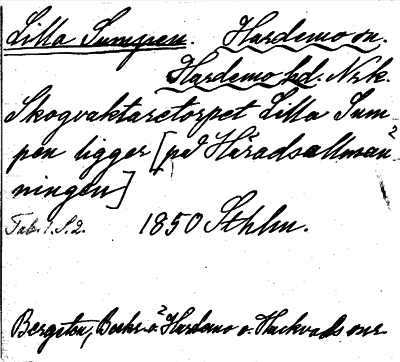 Lilla Sumpen. Hardemo sn.
Hardemo hd. Nrk.
Skogvaktaretorpet Lilla Sum-
pen ligger [på Häradsallmän-
ningen]
Tab. 1. S. 2. 1850 Sthlm.
Bergsten, Beskr. ö. Hardemo o. Hackvads snr